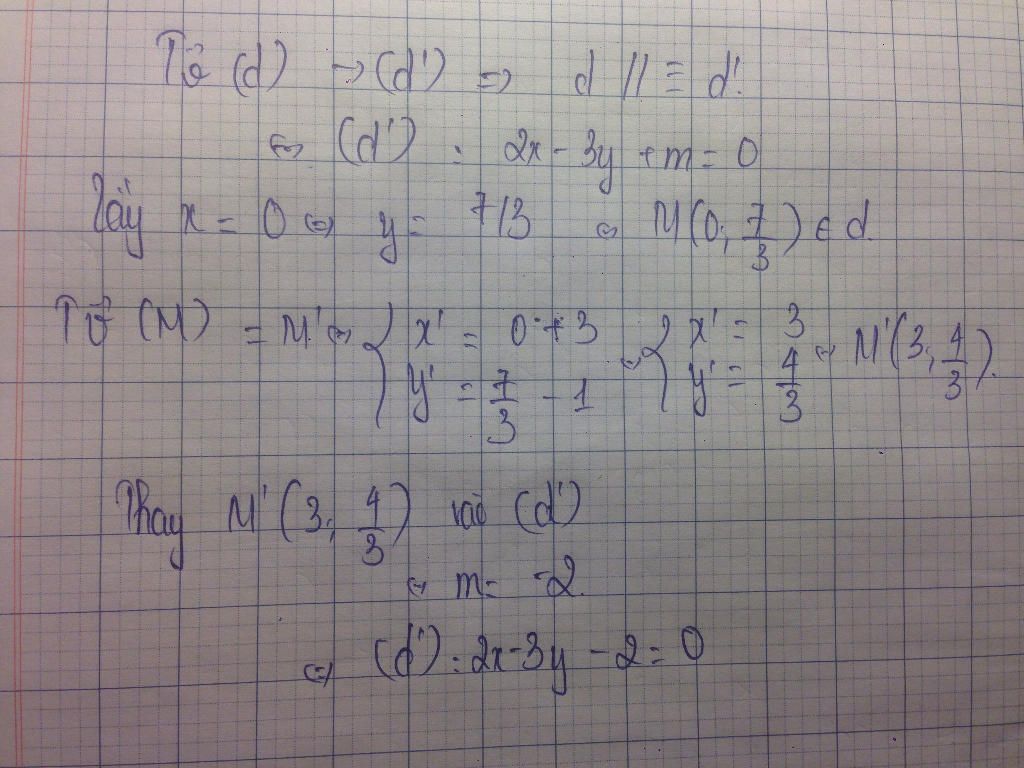 Tv⃗ (d) → (d') => d // ≡ d'.
<=> (d') : 2x - 3y + m = 0
Lấy x = 0 <=> y = 7/3 <=> M(0; 7/3) ∈ d.
Tv⃗ (M) = M' <=> { x' = 0 + 3 <=> { x' = 3 <=> M'(3; 4/3).
y' = 7/3 - 1 y' = 4/3
Thay M'(3; 4/3) vào (d')
<=> m = -2.
=> (d') : 2x - 3y - 2 = 0